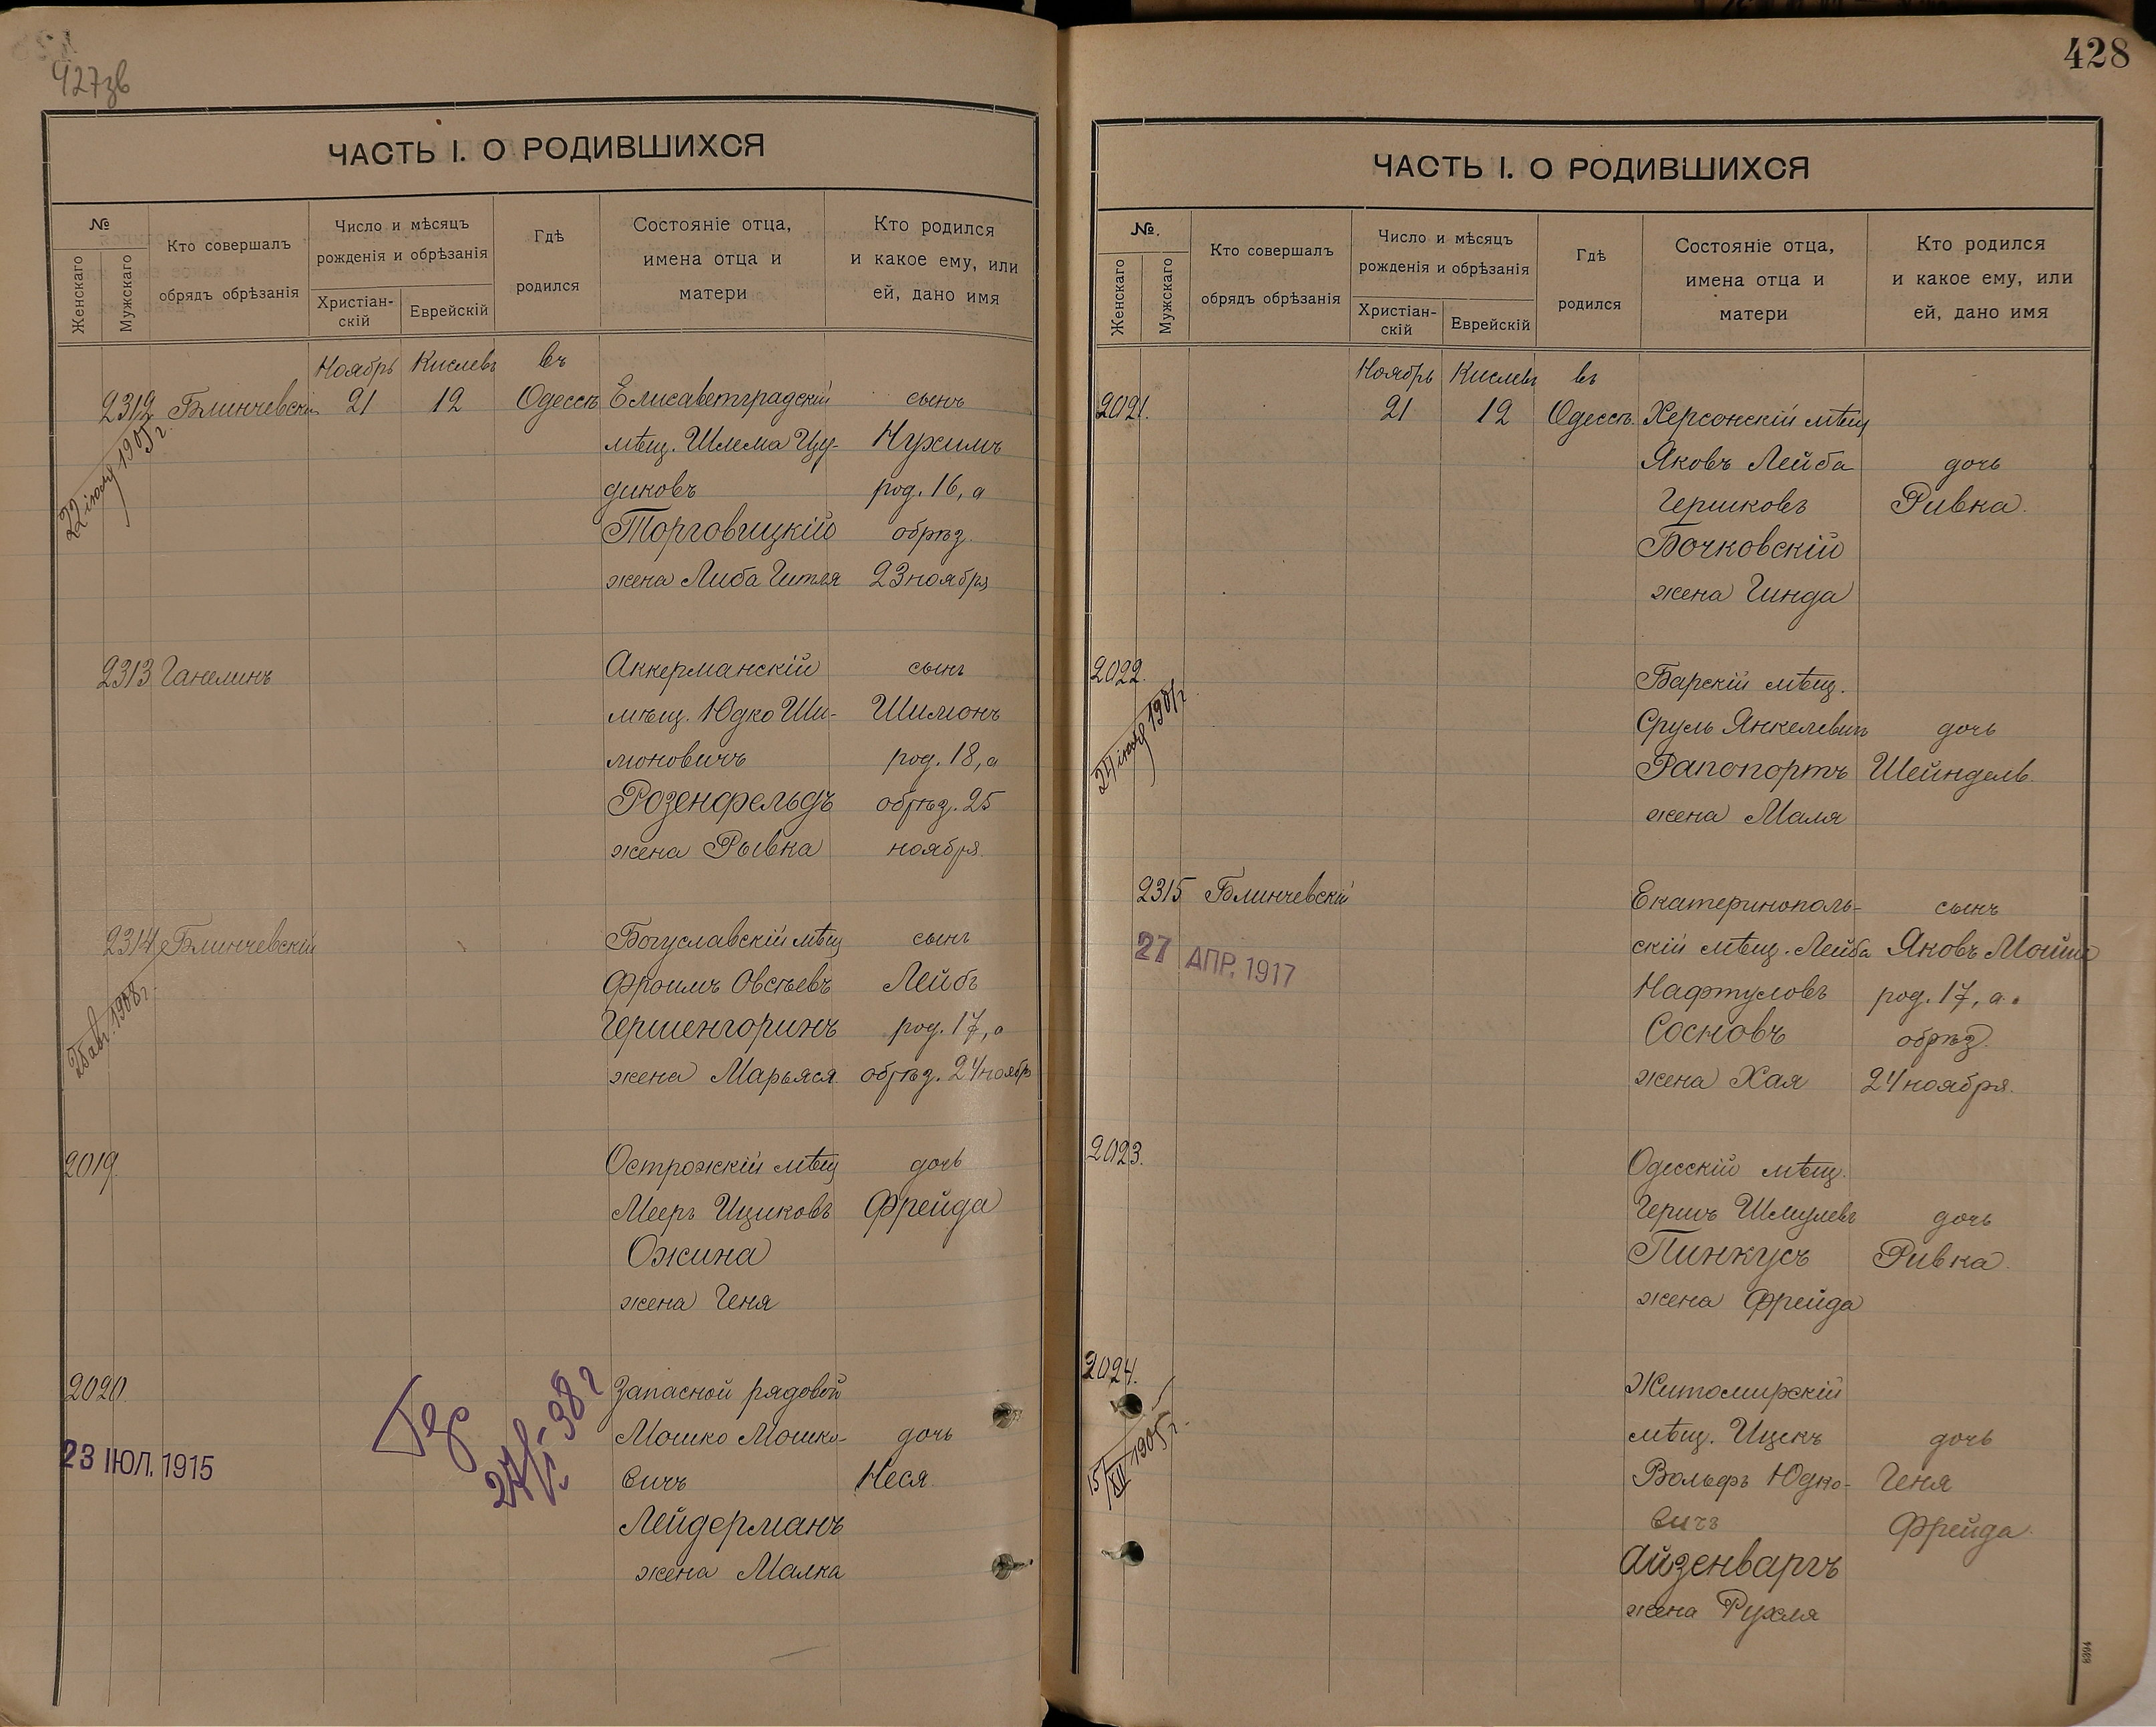 427зв
ЧАСТЬ I. О РОДИВШИХСЯ
№
Женскаго
Мужскаго
Кто совершалъ
обрядъ обрѣзанія
Число и мѣсяцъ
рожденія и обрѣзанія
Христіан-
скій
Еврейскій
Гдѣ
родился
Состояніе отца,
имена отца и
матери
Кто родился
и какое ему, или
ей, дано имя
Ноябрь Кислевъ въ
2312 Блинчевскій 21 12 Одессѣ Елисаветградскій сынъ
мѣщ. Шлема Цу- Нухимъ
диковъ род. 16, а
Торговицкій обрѣз.
жена Либа Гитля 23 ноября
22 іюня 1905 г.
2313 Ганелинъ Аккерманскій сынъ
мѣщ. Юдко Ши- Шимонъ
моновичъ род. 18, а
Розенфельдъ обрѣз. 25
жена Рывка ноября.
2314 Блинчевскій Богуславскій мѣщ сынъ
Фроимъ Овсѣевъ Лейбъ
Гершенгоринъ род. 17, а
жена Марьяся обрѣз. 24 ноябр
авг. 1908 г.
2019. Острожскій мѣщ дочь
Мееръ Ициковъ Фрейда
Ожина
жена Геня
2020. Запасной рядовой
Мошко Мошко- дочь
вичъ Неся.
Лейдерманъ
жена Малка
23 ІЮЛ. 1915
428
ЧАСТЬ I. О РОДИВШИХСЯ
№.
Женскаго
Мужскаго
Кто совершалъ
обрядъ обрѣзанія
Число и мѣсяцъ
рожденія и обрѣзанія
Христіан-
скій
Еврейскій
Гдѣ
родился
Состояніе отца,
имена отца и
матери
Кто родился
и какое ему, или
ей, дано имя
Ноябрь Кислевъ въ
2021. 21 12 Одессѣ. Херсонскій мѣщ
Яковъ Лейба дочь
Гершковъ Ривка.
Бочковскій
жена Гинда
2022. Барскій мѣщ.
Сруль Янкелевичъ дочь
Рапопортъ Шейндель.
жена Маля
2315 Блинчевскій Екатеринополь- сынъ
скій мѣщ. Лейба Яковъ Мойше
Нафтуловъ род. 17, а.
Сосновъ обрѣз.
жена Хая 24 ноября.
27 АПР. 1917
2023. Одесскій мѣщ.
Гершъ Шмулевъ дочь
Пинкусъ Ривка.
жена Фрейда
2024. Житомирскій
мѣщ. Ицекъ дочь
Вольфъ Юдко- Геня
вичъ Фрейда.
Айзенваргъ
жена Рухля
15/XII 1905 г.